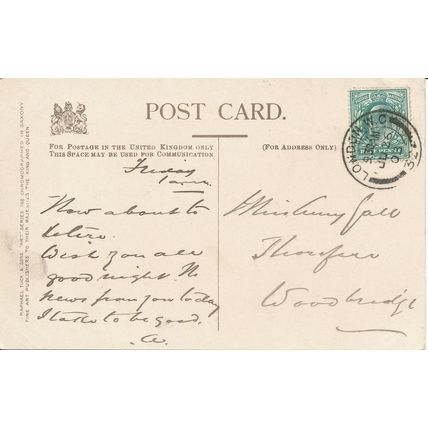 POST CARD.
FOR POSTAGE IN THE UNITED KINGDOM ONLY
THIS SPACE MAY BE USED FOR COMMUNICATION
(FOR ADDRESS ONLY)
RAPHAEL TUCK & SONS' "ART" SERIES
CHROMOGRAPHED IN SAXONY
FINE ART PUBLISHERS TO THEIR MAJESTIES THE KING AND QUEEN
LONDON W.C
Friday
Now about to
retire.
Wish you all
good night. No
news from you today
I take to be good.
A.
Miss
Woodbridge